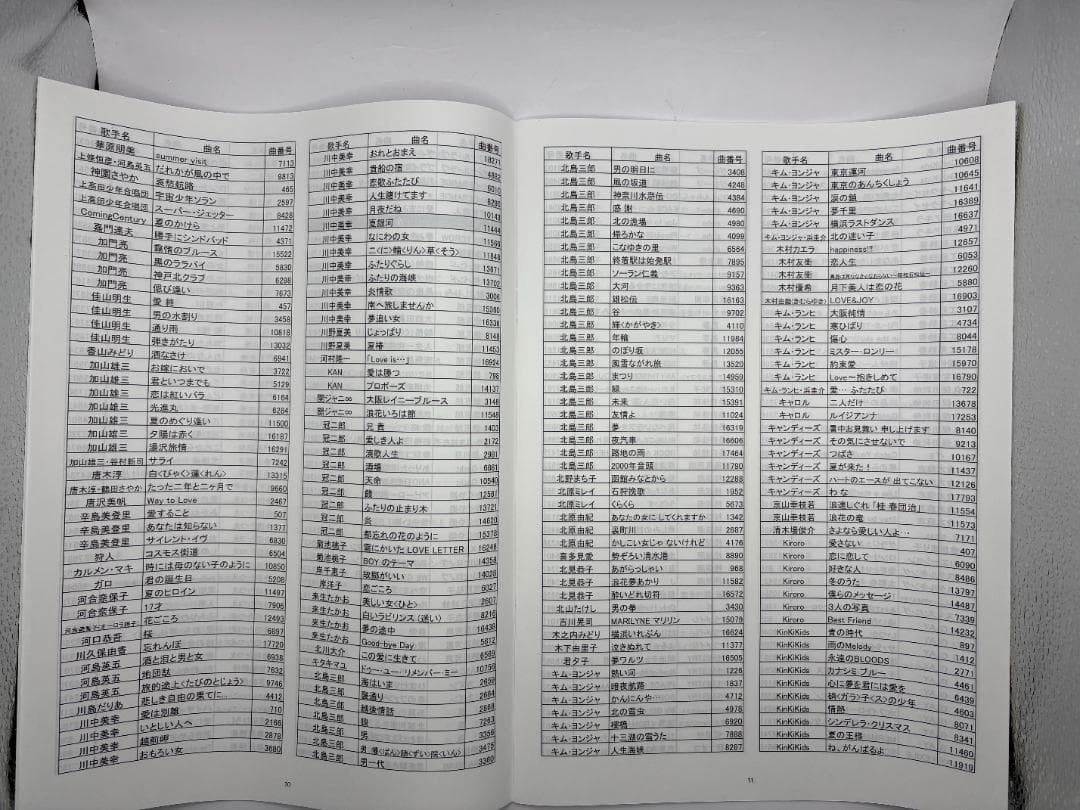 歌手名 曲名 曲番号
華原朋美 summer visit 7113
上條恒彦・河島英五 だれかが風の中で 9813
神園さやか 哀愁航路 465
上高田少年合唱団 宇宙少年ソラン 2597
上高田少年合唱団 スーパー・ジェッター 8428
ComingCentury 夏のかけら 11472
嘉門達夫 勝手にシンドバッド 4371
加門亮 霧情のブルース 15522
加門亮 黒のララバイ 5830
加門亮 神戸北クラブ 6298
加門亮 偲び逢い 7673
佳山明生 愛終 457
佳山明生 男の水割り 3458
佳山明生 通り雨 10818
佳山明生 弾きがたり 13032
香山みどり 酒なさけ 6941
加山雄三 お嫁においで 3722
加山雄三 君といつまでも 5129
加山雄三 恋は紅いバラ 6164
加山雄三 光進丸 6284
加山雄三 夏のめぐり逢い 11500
加山雄三 夕陽は赤く 16187
加山雄三 湯沢旅情 16291
加山雄三・谷村新司 サライ 7242
唐木淳 白〈びゃく〉蓮〈れん〉 13315
唐木淳・鶴田さやか たった二年と二ヶ月で 9660
唐沢美帆 Way to Love 2467
辛島美登里 愛すること 507
辛島美登里 あなたは知らない 1377
辛島美登里 サイレント・イヴ 6930
狩人 コスモス街道 6504
カルメン・マキ 時には母のない子のように 10850
ガロ 君の誕生日 5208
河合奈保子 夏のヒロイン 11497
河合奈保子 17才 7906
花ごころ 12493
河口恭吾 桜 6697
川久保由香 忘れんぼ 17720
河島英五 酒と泪と男と女 6938
河島英五 地団駄 7632
河島英五 旅的途上〈たびのとじょう〉 9746
川島だりあ 悲しき自由の果てに.. 4412
川中美幸 愛は別離 710
川中美幸 いとしい人へ 2166
川中美幸 越前岬 2878
川中美幸 おもろい女 3680
10
歌手名 曲名 曲番号
川中美幸 おれとおまえ 18271
川中美幸 貴船の宿 4882
川中美幸 恋歌ふたたび 6010
川中美幸 人生賭けてます 8290
川中美幸 月夜だね 10143
川中美幸 夏銀河 11444
川中美幸 なにわの女 11599
川中美幸 二〈に〉輪〈りん〉草〈そう〉 11848
川中美幸 ふたりぐらし 13671
川中美幸 ふたりの海峡 13702
川中美幸 炎情歌 3006
川中美幸 南へ旅しませんか 15080
川中美幸 夢追い女 16338
川野夏美 じょっぱり 8011
川野夏美 夏椿 11453
河村隆一 「Love is…」 16924
KAN 愛は勝つ 766
KAN プロポーズ 14137
関ジャニ∞ 大阪レイニーブルース 3148
関ジャニ∞ 浪花いろは節 11548
冠二郎 兄貴 1403
冠二郎 愛しき人よ 2172
冠二郎 演歌人生 2981
冠二郎 酒場 6861
冠二郎 天命 10540
冠二郎 12591
冠二郎 ふたりの止まり木 13721
冠二郎 炎 14620
冠二郎 都忘れの花のように 15378
菊池桃子 雪にかいた LOVE LETTER 16248
菊池桃子 BOY のテーマ 14358
岸千恵子 故郷がいい 14028
岸洋子 恋ごころ 6027
来生たかお 美しい女〈ひと〉 2607
来生たかお 白いラビリンス(迷い) 8216
来生たかお 夢の途中 16436
来生たかお Good-bye Day 5812
北川大介 この愛に生きて 6589
キタキマユ ドゥー・ユー・リメンバー・ミー 10756
北島三郎 海はいま 2639
北島三郎 2684
北島三郎 越後情話 2869
北島三郎 7243
北島三郎 男 3359
北島三郎 3475
北島三郎 男一代 3360
歌手名 曲名 曲番号
北島三郎 男の明日に 3406
北島三郎 風の坂道 4248
北島三郎 神奈川水滸伝 4384
北島三郎 感謝 4690
北島三郎 北の漁場 4980
北島三郎 帰るかな 4099
北島三郎 こなゆきの里 6564
北島三郎 終着駅は始発駅 7895
北島三郎 ソーラン仁義 9157
北島三郎 大河 9363
北島三郎 雄松伝 16163
北島三郎 谷 9702
北島三郎 輝〈かがやき〉 4110
北島三郎 年輪 11984
北島三郎 のぼり坂 12055
北島三郎 風雪ながれ旅 13520
北島三郎 まつり 14959
北島三郎 緑 15310
北島三郎 未来 15391
北島三郎 友情よ 11024
北島三郎 夢 16319
北島三郎 夜汽車 16606
北島三郎 路地の雨 17464
北島三郎 2000年音頭 11790
北野まち子 函館みなとから 12288
北原ミレイ 石狩挽歌 1952
北原ミレイ くらくら 5673
北原由紀 あなたの女に してくれますか 1342
北原由紀 裏町川 2687
北原由紀 かしこい女じゃ ないけれど 4176
喜多見愛 勢ぞろい清水港 8890
北見恭子 あがらっしゃい 968
北見恭子 浪花夢あかり 11582
北見恭子 酔いどれ切符 16572
北山たけし 男の拳 3430
吉川晃司 MARILYNE マリリン 15079
木之内みどり 横浜いれぶん 16624
木下由里子 泣きぬれて 11377
君夕子 夢ワルツ 16505
キム・ヨンジャ 熱い河 1226
キム・ヨンジャ 暗夜航路 1837
キム・ヨンジャ かんにんや… 4712
キム・ヨンジャ 北の雪虫 4978
キム・ヨンジャ 桜橋 6920
キム・ヨンジャ 十三湖の雪うた 7888
キム・ヨンジャ 人生海峡 8287
歌手名 曲名 曲番号
キム・ヨンジャ 東京運河 10608
キム・ヨンジャ 東京のあんちくしょう 10645
キム・ヨンジャ 涙の鎖 11641
キム・ヨンジャ 夢千里 16389
キム・ヨンジャ 横浜ラストダンス 16637
キム・ヨンジャ・浜圭介 北の迷い子 4971
木村カエラ happiness!!! 12657
木村友衛 恋人生 6053
木村友衛 12260
木村優希 月下美人は恋の花 5880
木村由姫(きむらゆき) LOVE&JOY 16903
キム・ランヒ 大阪純情 3107
キム・ランヒ 寒ひばり 4734
キム・ランヒ 傷心 8044
キム・ランヒ ミスター・ロンリー 15178
キム・ランヒ 約束愛 15970
キム・ランヒ Love〜抱きしめて 16790
キム・ランヒ・浜圭介 愛…ふたたび 722
キャロル 二人だけ 13678
キャロル ルイジアンナ 17253
キャンディーズ 暑中お見舞い 申し上げます 8140
キャンディーズ その気にさせないで 9213
キャンディーズ つばさ 10167
キャンディーズ 夏が来た! 11437
キャンディーズ ハートのエースが 出てこない 12126
キャンディーズ わな 17793
京山幸枝若 浪速しぐれ「桂 春団治」 11554
京山幸枝若 浪花の竜 11573
清木場俊介 さよなら愛しい人よ… 7171
Kiroro 愛さない 407
Kiroro 恋に恋して 6090
Kiroro 好きな人 8486
Kiroro 冬のうた 13797
Kiroro 僕らのメッセージ 14487
Kiroro 3人の写真 7339
Kiroro Best Friend 14232
KinKiKids 青の時代 897
KinKiKids 雨のMelody 1412
KinKiKids 永遠のBLOODS 2771
KinKiKids カナシミ ブルー 4461
KinKiKids 心に夢を君には愛を 6439
KinKiKids 硝〈ガラ〉子〈ス〉の少年 4603
KinKiKids 情熱 8071
KinKiKids シンデレラ・クリスマス 8341
KinKiKids 夏の王様 11460
KinKiKids ね、がんばるよ 11919
11